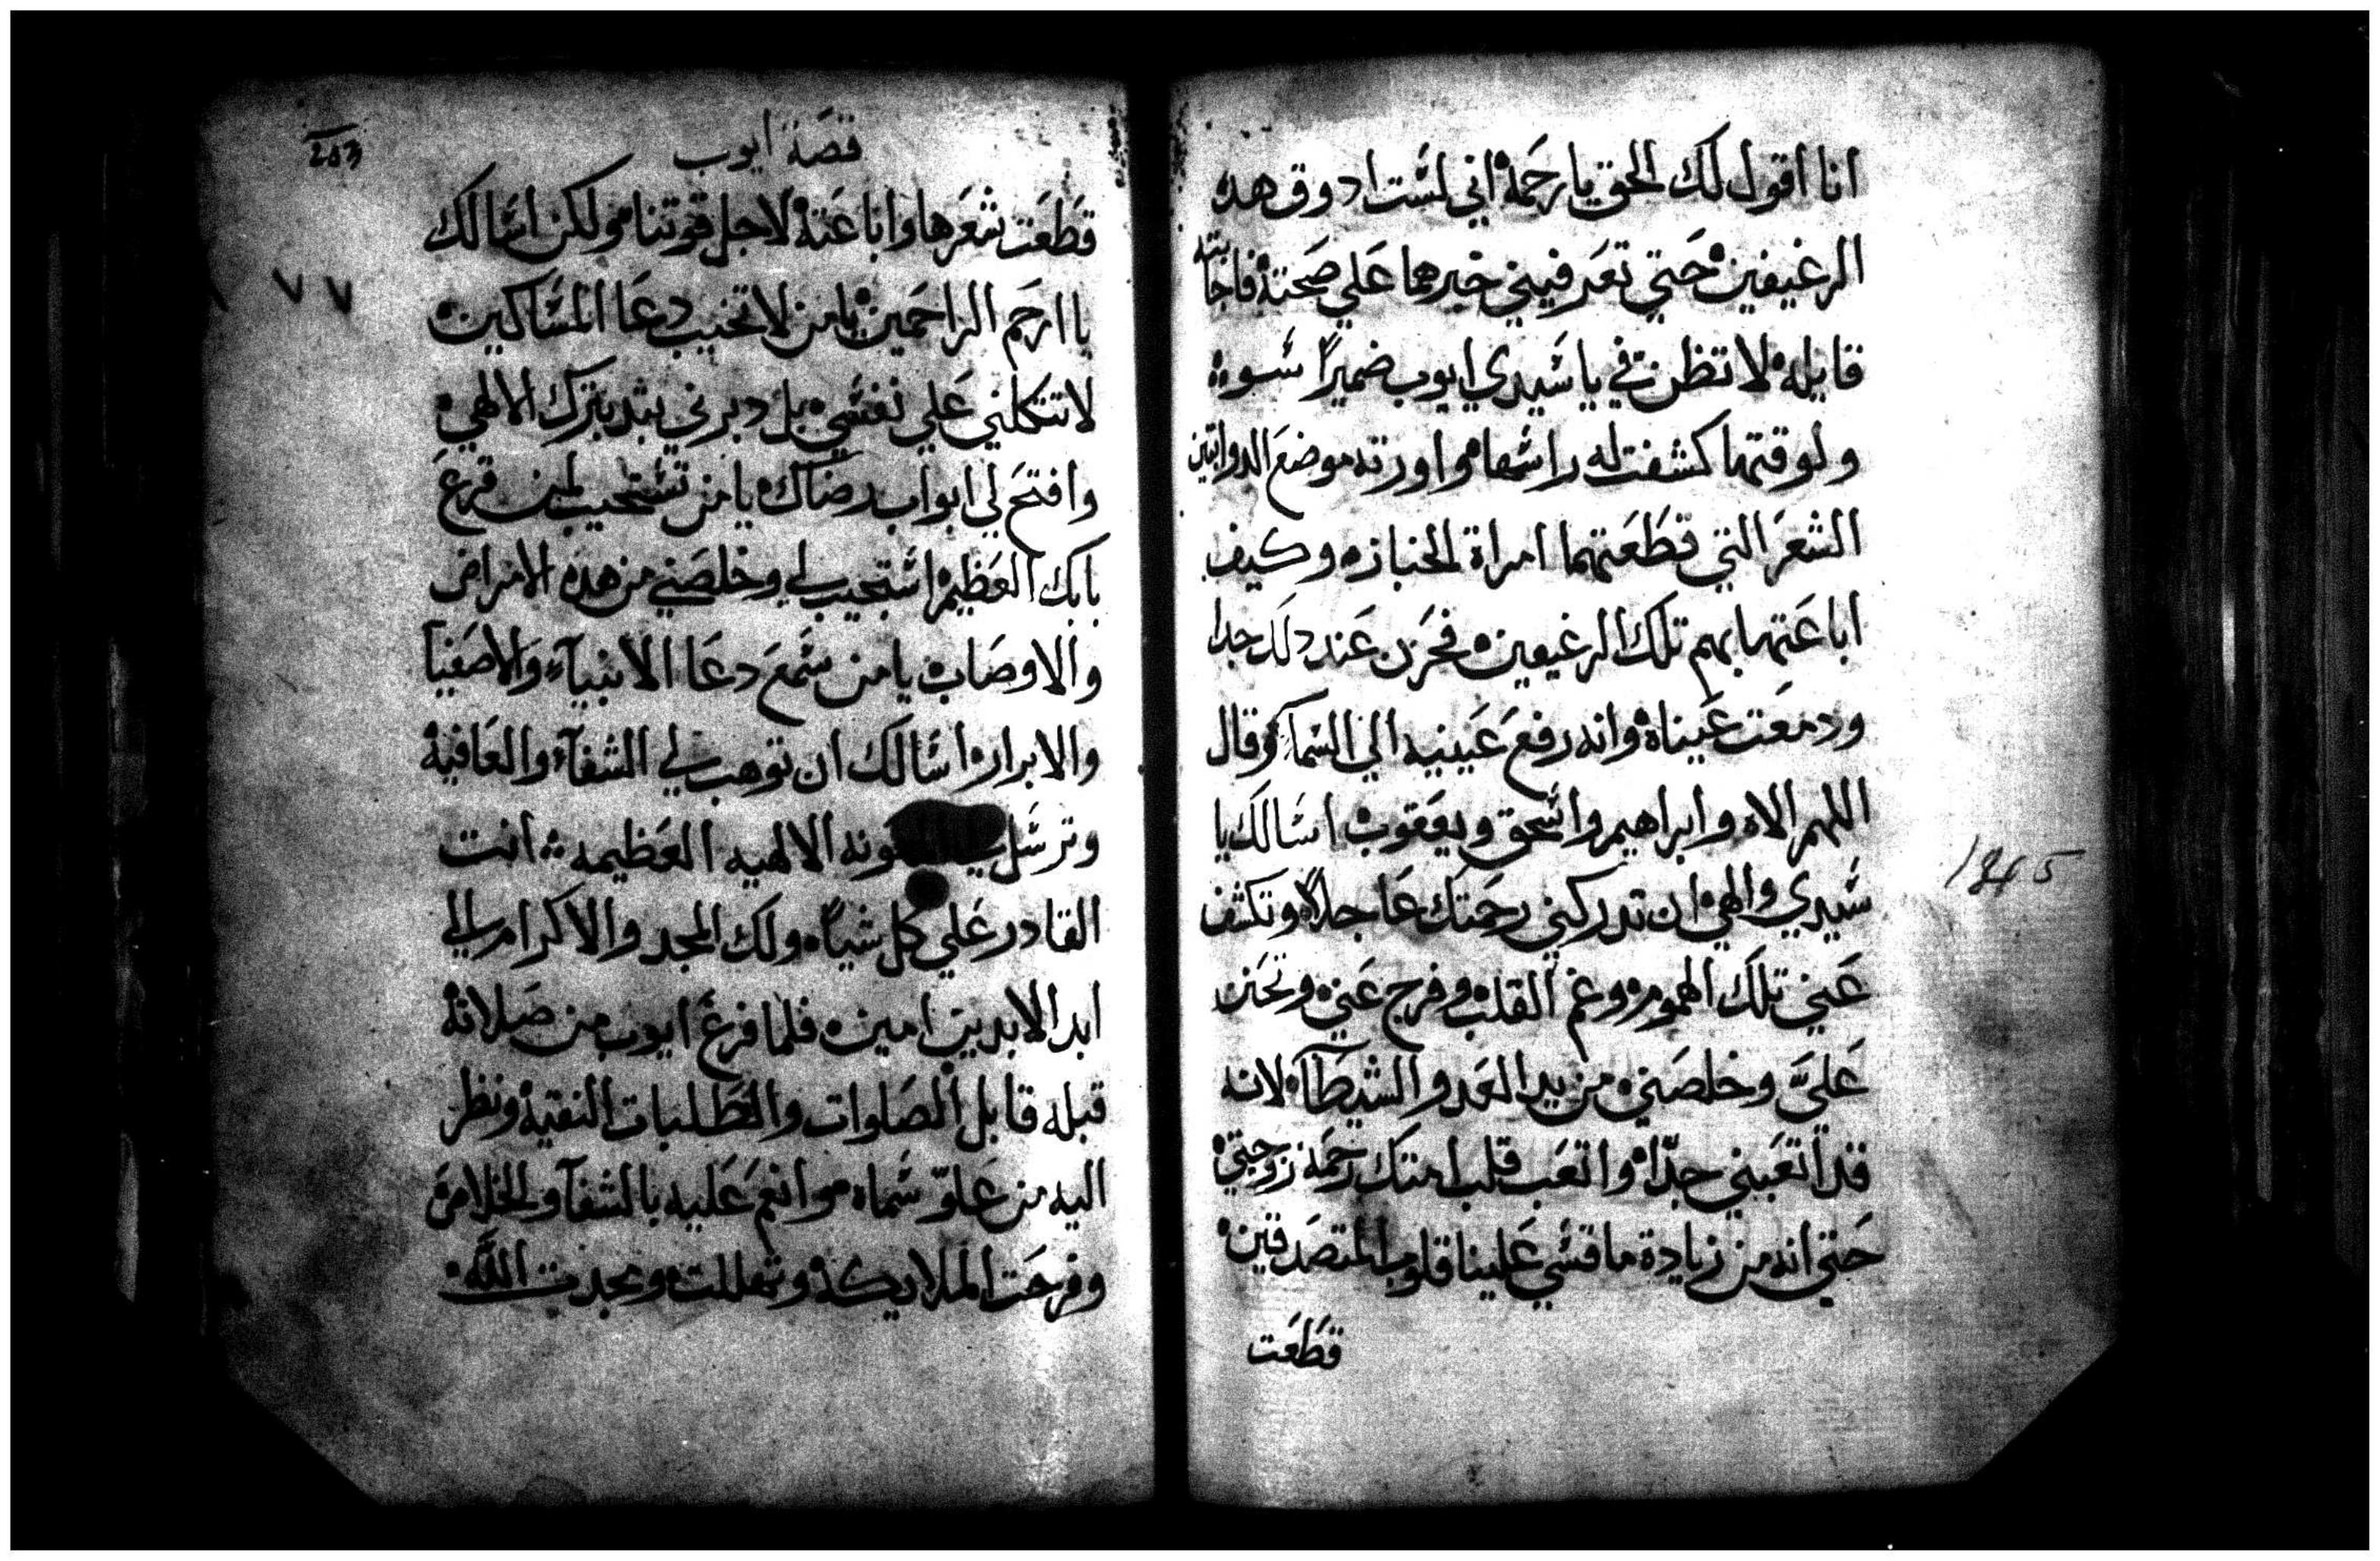 انا اقول لك الحق يا رحمة اني لست ادوق هده
الرغيفين حتي تعرفيني خبرهما علي صحته فاجابته
قايله لا تظن في يا سيدي ايوب ضميرًا سوء
ولوقتها كشفت له راسها واورته موضع الدوابتين
الشعر التي قطعتهما امراة الخبازه وكيف
اباعتها بهم تلك الرغيفين فحزن عند دلك جدا
ودمعت عيناه وانه رفع عينيه الي السماء وقال
اللهم الاه وابراهيم واسحق ويعقوب اسالك يا
سيدي والهي ان تدركني رحمتك عاجلاً وتكشف
عني تلك الهموم وغم القلب وفرج عني وتحنن
عليَّ وخلصني من يد العدو الشيطان لانه
قد اتعبني جدًا واتعب قلب امتك رحمة زوجتي
حتي انه من زيادة ما قسي علينا قلوب المتصدقين
قطعت
1245
203
قصة ايوب
٧ ٧
قطعت شعرها واباعته لاجل قوتنا ولكن اسالك
يا ارحم الراحمين يا من لا تخيب دعا المساكين
لا تتكلني علي نفسي بل دبرني بتدبيرك الالهي
وافتح لي ابواب رضاك يا من تستجيب لمن قرع
بابك العظيم استجيب لي وخلصني من هده الامراض
والاوصاب يا من سمع دعا الانبياء والاصفيا
والابرار اسالك ان توهب لي الشفاء والعافية
وترسل الالهيه العظيمه انت
القادر علي كل شياً ولك المجد والاكرام الي
ابد الابدين امين فلما فرغ ايوب من صلاته
قبله قابل الصلوات والطلبات النقية ونظر
اليه من علوّ سماه وانعم عليه بالشفآ والخلاص
وفرحت الملايكة وتهللت ومجدت الله